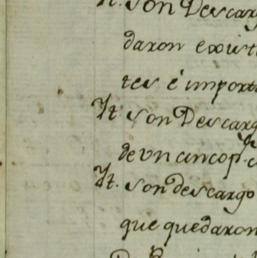 It. son Descarg
daron exist
tes é import
It son Descarg
de vn cinco p.
It. son descargo
que quedaron